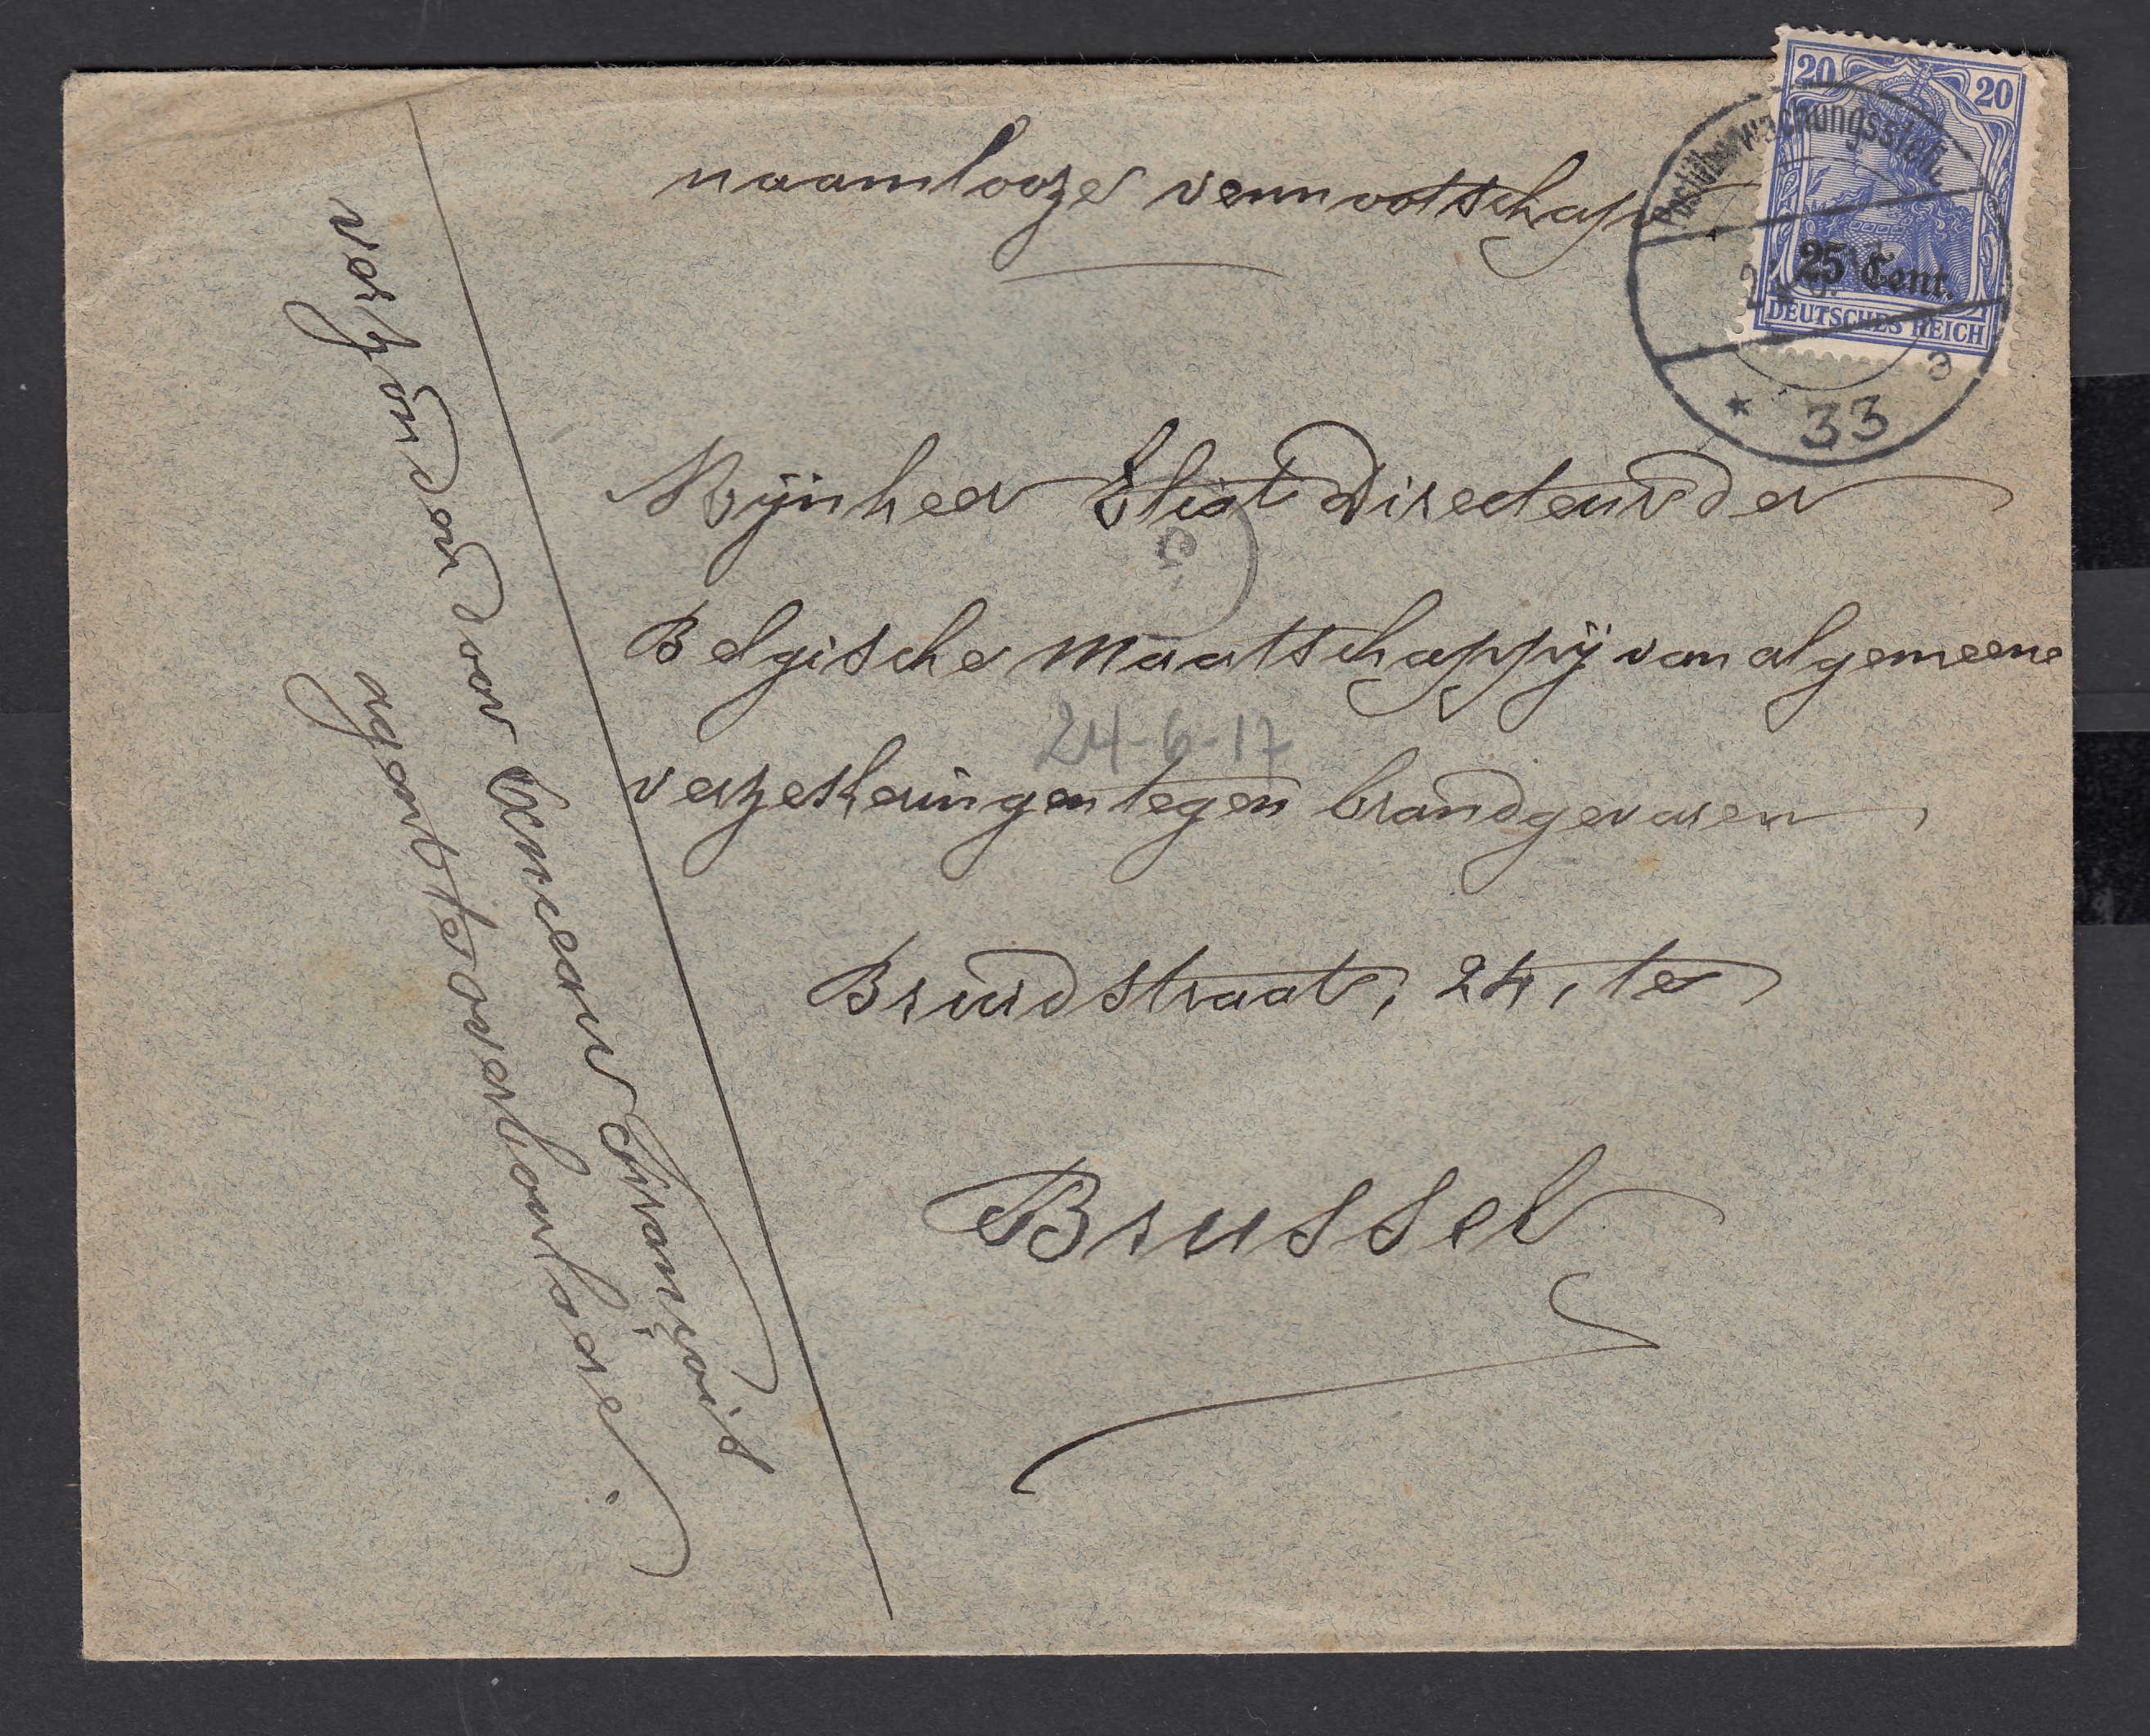 naamlooze vennootschap
20 20
25 Cent.
DEUTSCHES REICH
Postüberwachungsstelle
* 33
Mijnheer Eliat Directeur der
Belgische Maatschappij van algemeene
24-6-17
verzekeringen tegen brandgevaren
Bruidstraat, 24, te
Brussel
verzonden door François
agent te overboulaere.